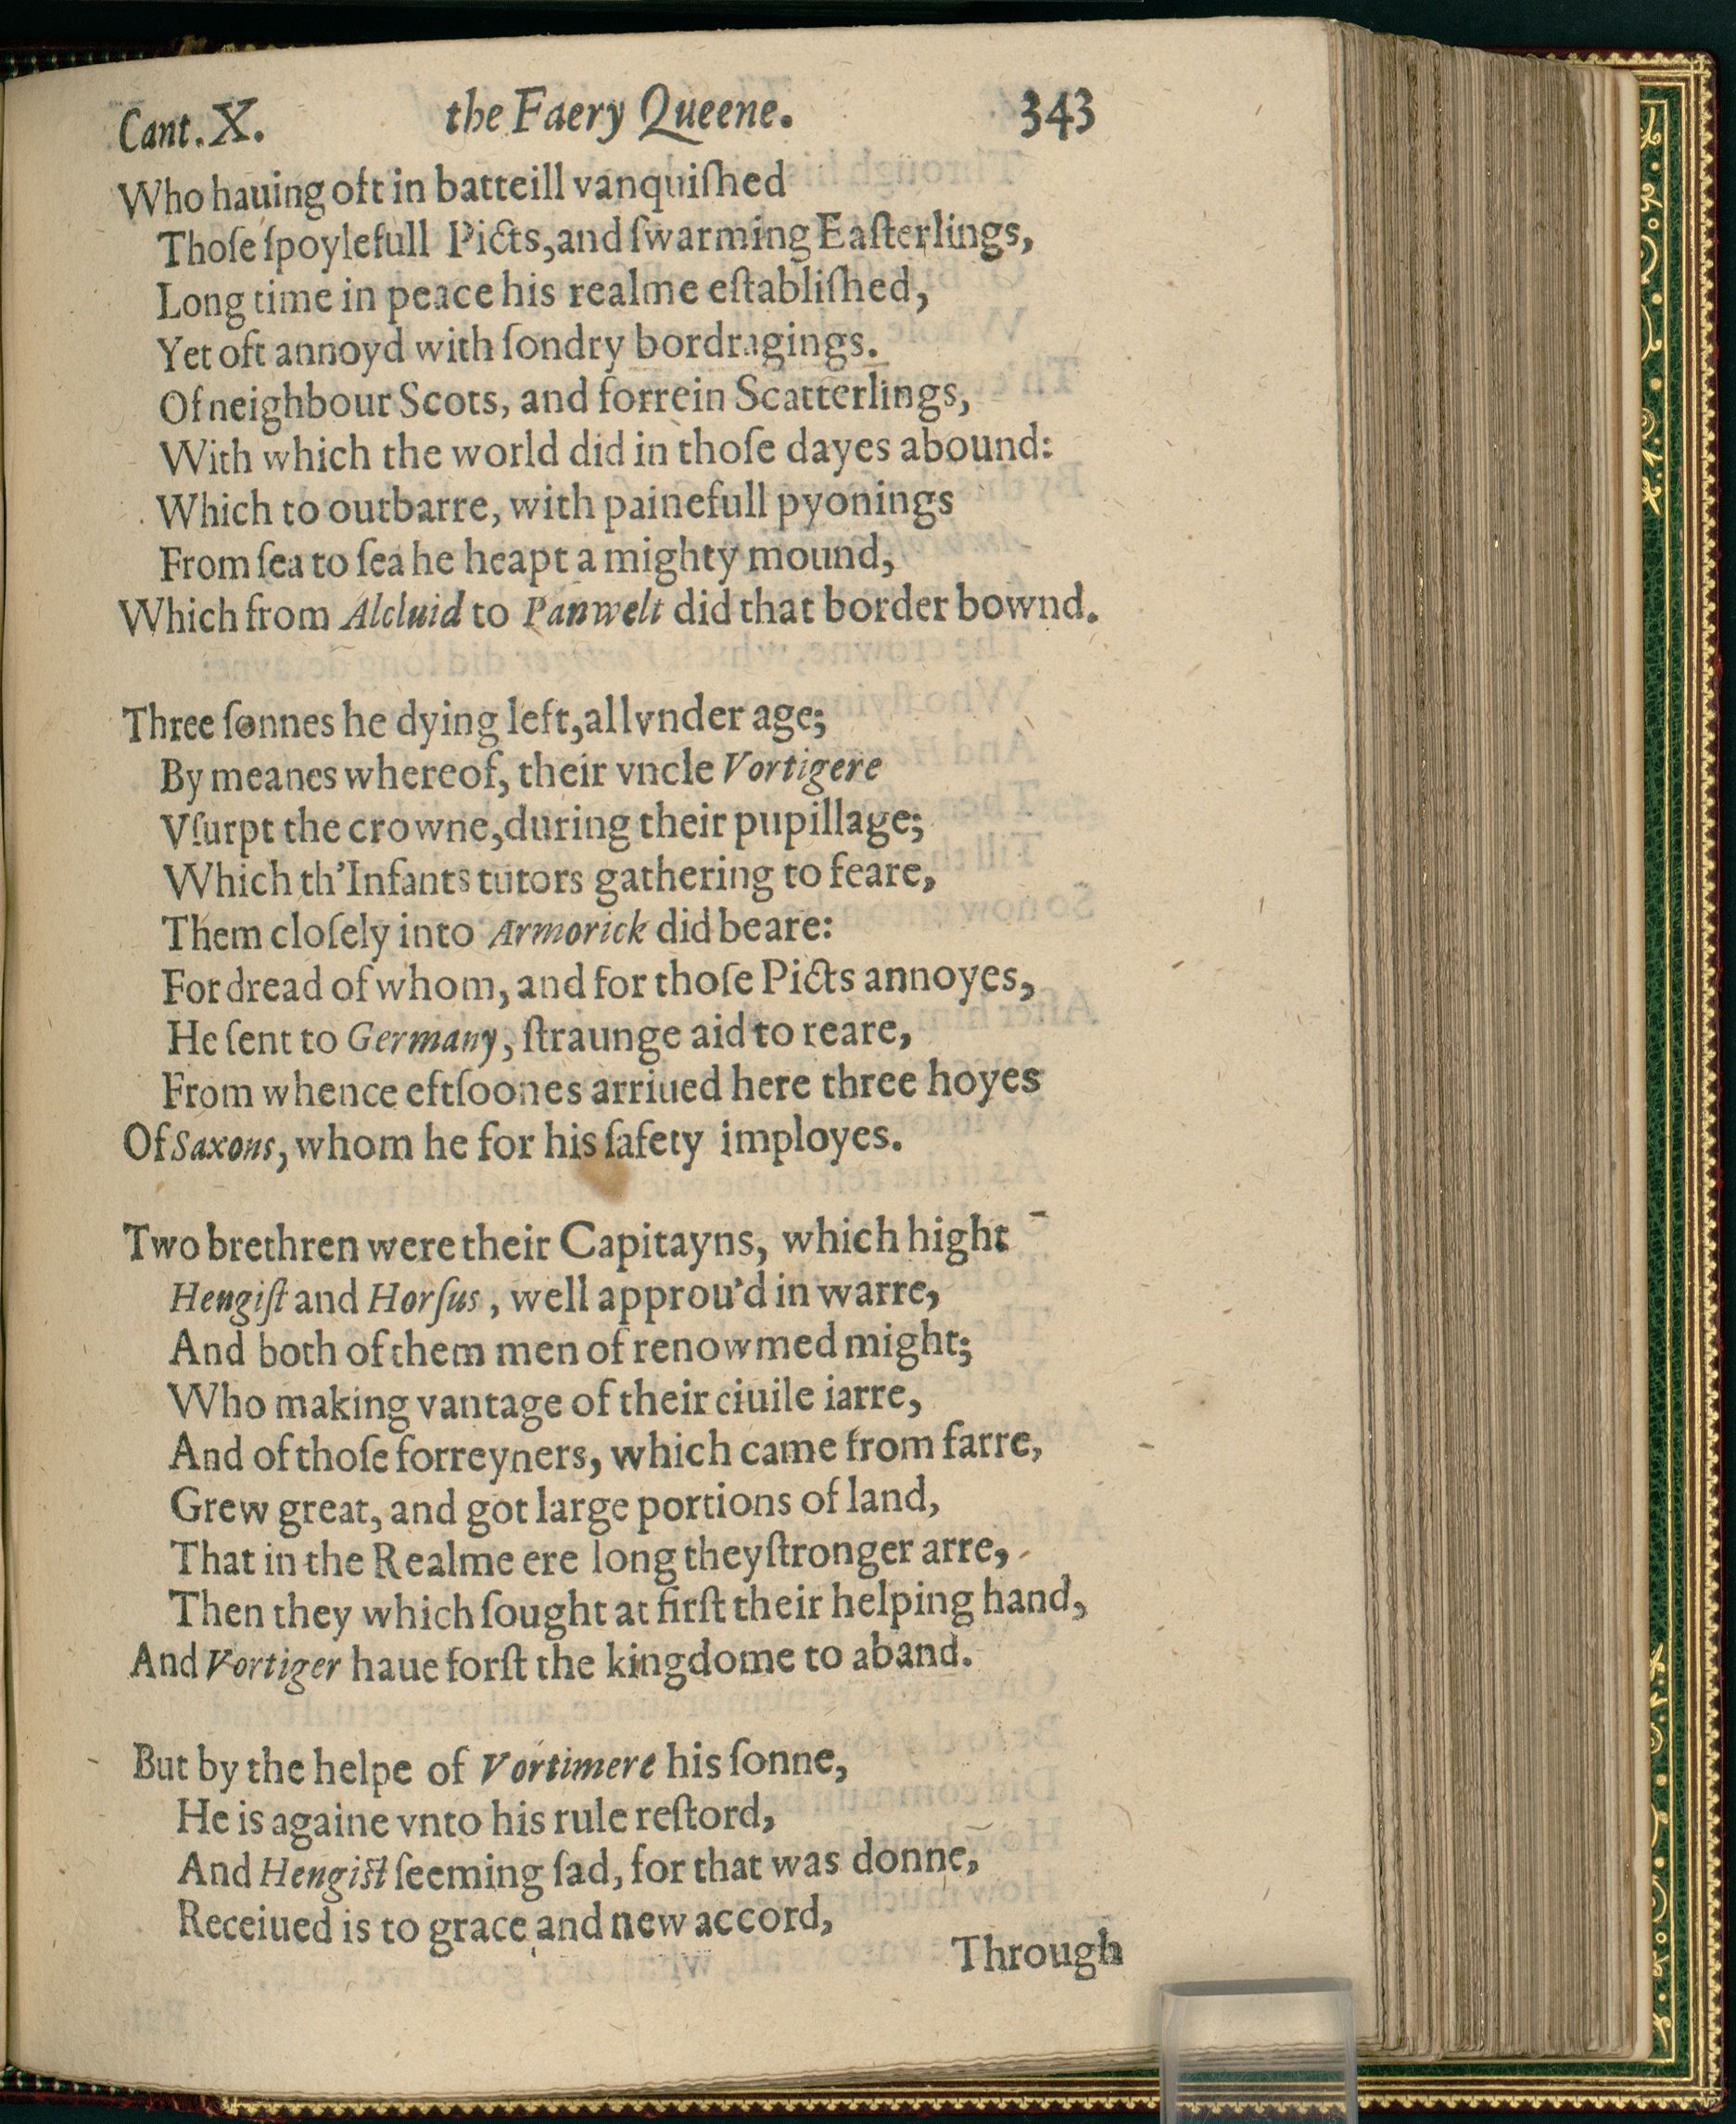 Cant. X. the Faery Queene. 343
Who hauing oft in batteill vanquiſhed
Thoſe ſpoylefull Picts, and ſwarming Eaſterlings,
Long time in peace his realme eſtabliſhed,
Yet oft annoyd with ſondry bordragings.
Of neighbour Scots, and forrein Scatterlings,
With which the world did in thoſe dayes abound:
Which to outbarre, with painefull pyonings
From ſea to ſea he heapt a mighty mound,
Which from Alcluid to Panwelt did that border bownd.
Three ſonnes he dying left, all vnder age;
By meanes whereof, their vncle Vortigere
Vſurpt the crowne, during their pupillage;
Which th'Infants tutors gathering to feare,
Them cloſely into Armorick did beare:
For dread of whom, and for thoſe Picts annoyes,
He ſent to Germany, ſtraunge aid to reare,
From whence eftſoones arriued here three hoyes
Of Saxons, whom he for his ſafety imployes.
Two brethren were their Capitayns, which hight
Hengiſt and Horſus, well approu'd in warre,
And both of them men of renowmed might;
Who making vantage of their ciuile iarre,
And of thoſe forreyners, which came from farre,
Grew great, and got large portions of land,
That in the Realme ere long they ſtronger arre,
Then they which ſought at firſt their helping hand,
And Vortiger haue forſt the kingdome to aband.
But by the helpe of Vortimere his ſonne,
He is againe vnto his rule reſtord,
And Hengiſt ſeeming ſad, for that was donne,
Receiued is to grace and new accord,
Through